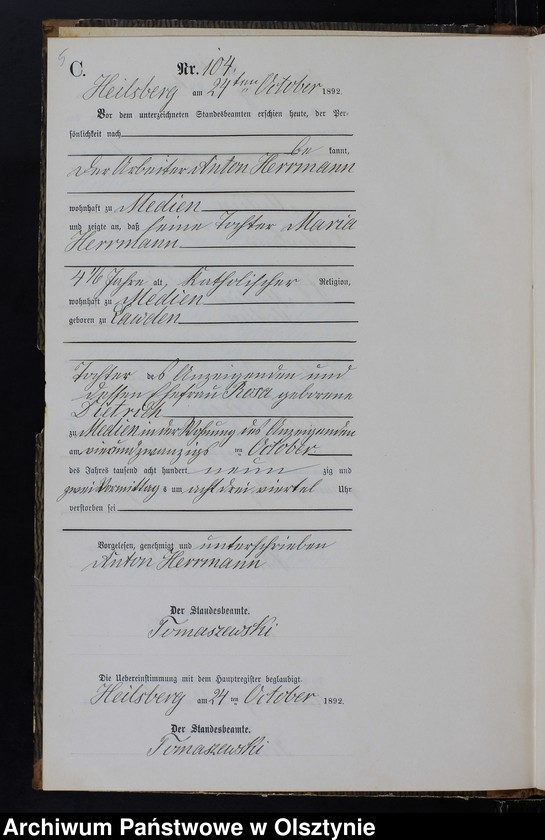 C.
Nr. 104.
Heilsberg am 24ten October 1892.
Vor dem unterzeichneten Standesbeamten erschien heute, der Per-
sönlichkeit nach
be kannt,
der Arbeiter Anton Herrmann
wohnhaft zu Medien
und zeigte an, daß seine Tochter Maria
Herrmann
4 1/6 Jahre alt, katholischer Religion,
wohnhaft zu Medien
geboren zu Lawden
Tochter des Anzeigenden und
dessen Ehefrau Rosa geborene
Dietrich
zu Medien in der Wohnung des Anzeigenden
am vierundzwanzigs ten October
des Jahres tausend acht hundert neun zig und
zwei Vormittags um acht drei viertel Uhr
verstorben sei
Vorgelesen, genehmigt und unterschrieben
Anton Herrmann
Der Standesbeamte.
Tomaszewski
Die Uebereinstimmung mit dem Hauptregister beglaubigt.
Heilsberg am 24 ten October 1892.
Der Standesbeamte.
Tomaszewski
Archiwum Państwowe w Olsztynie